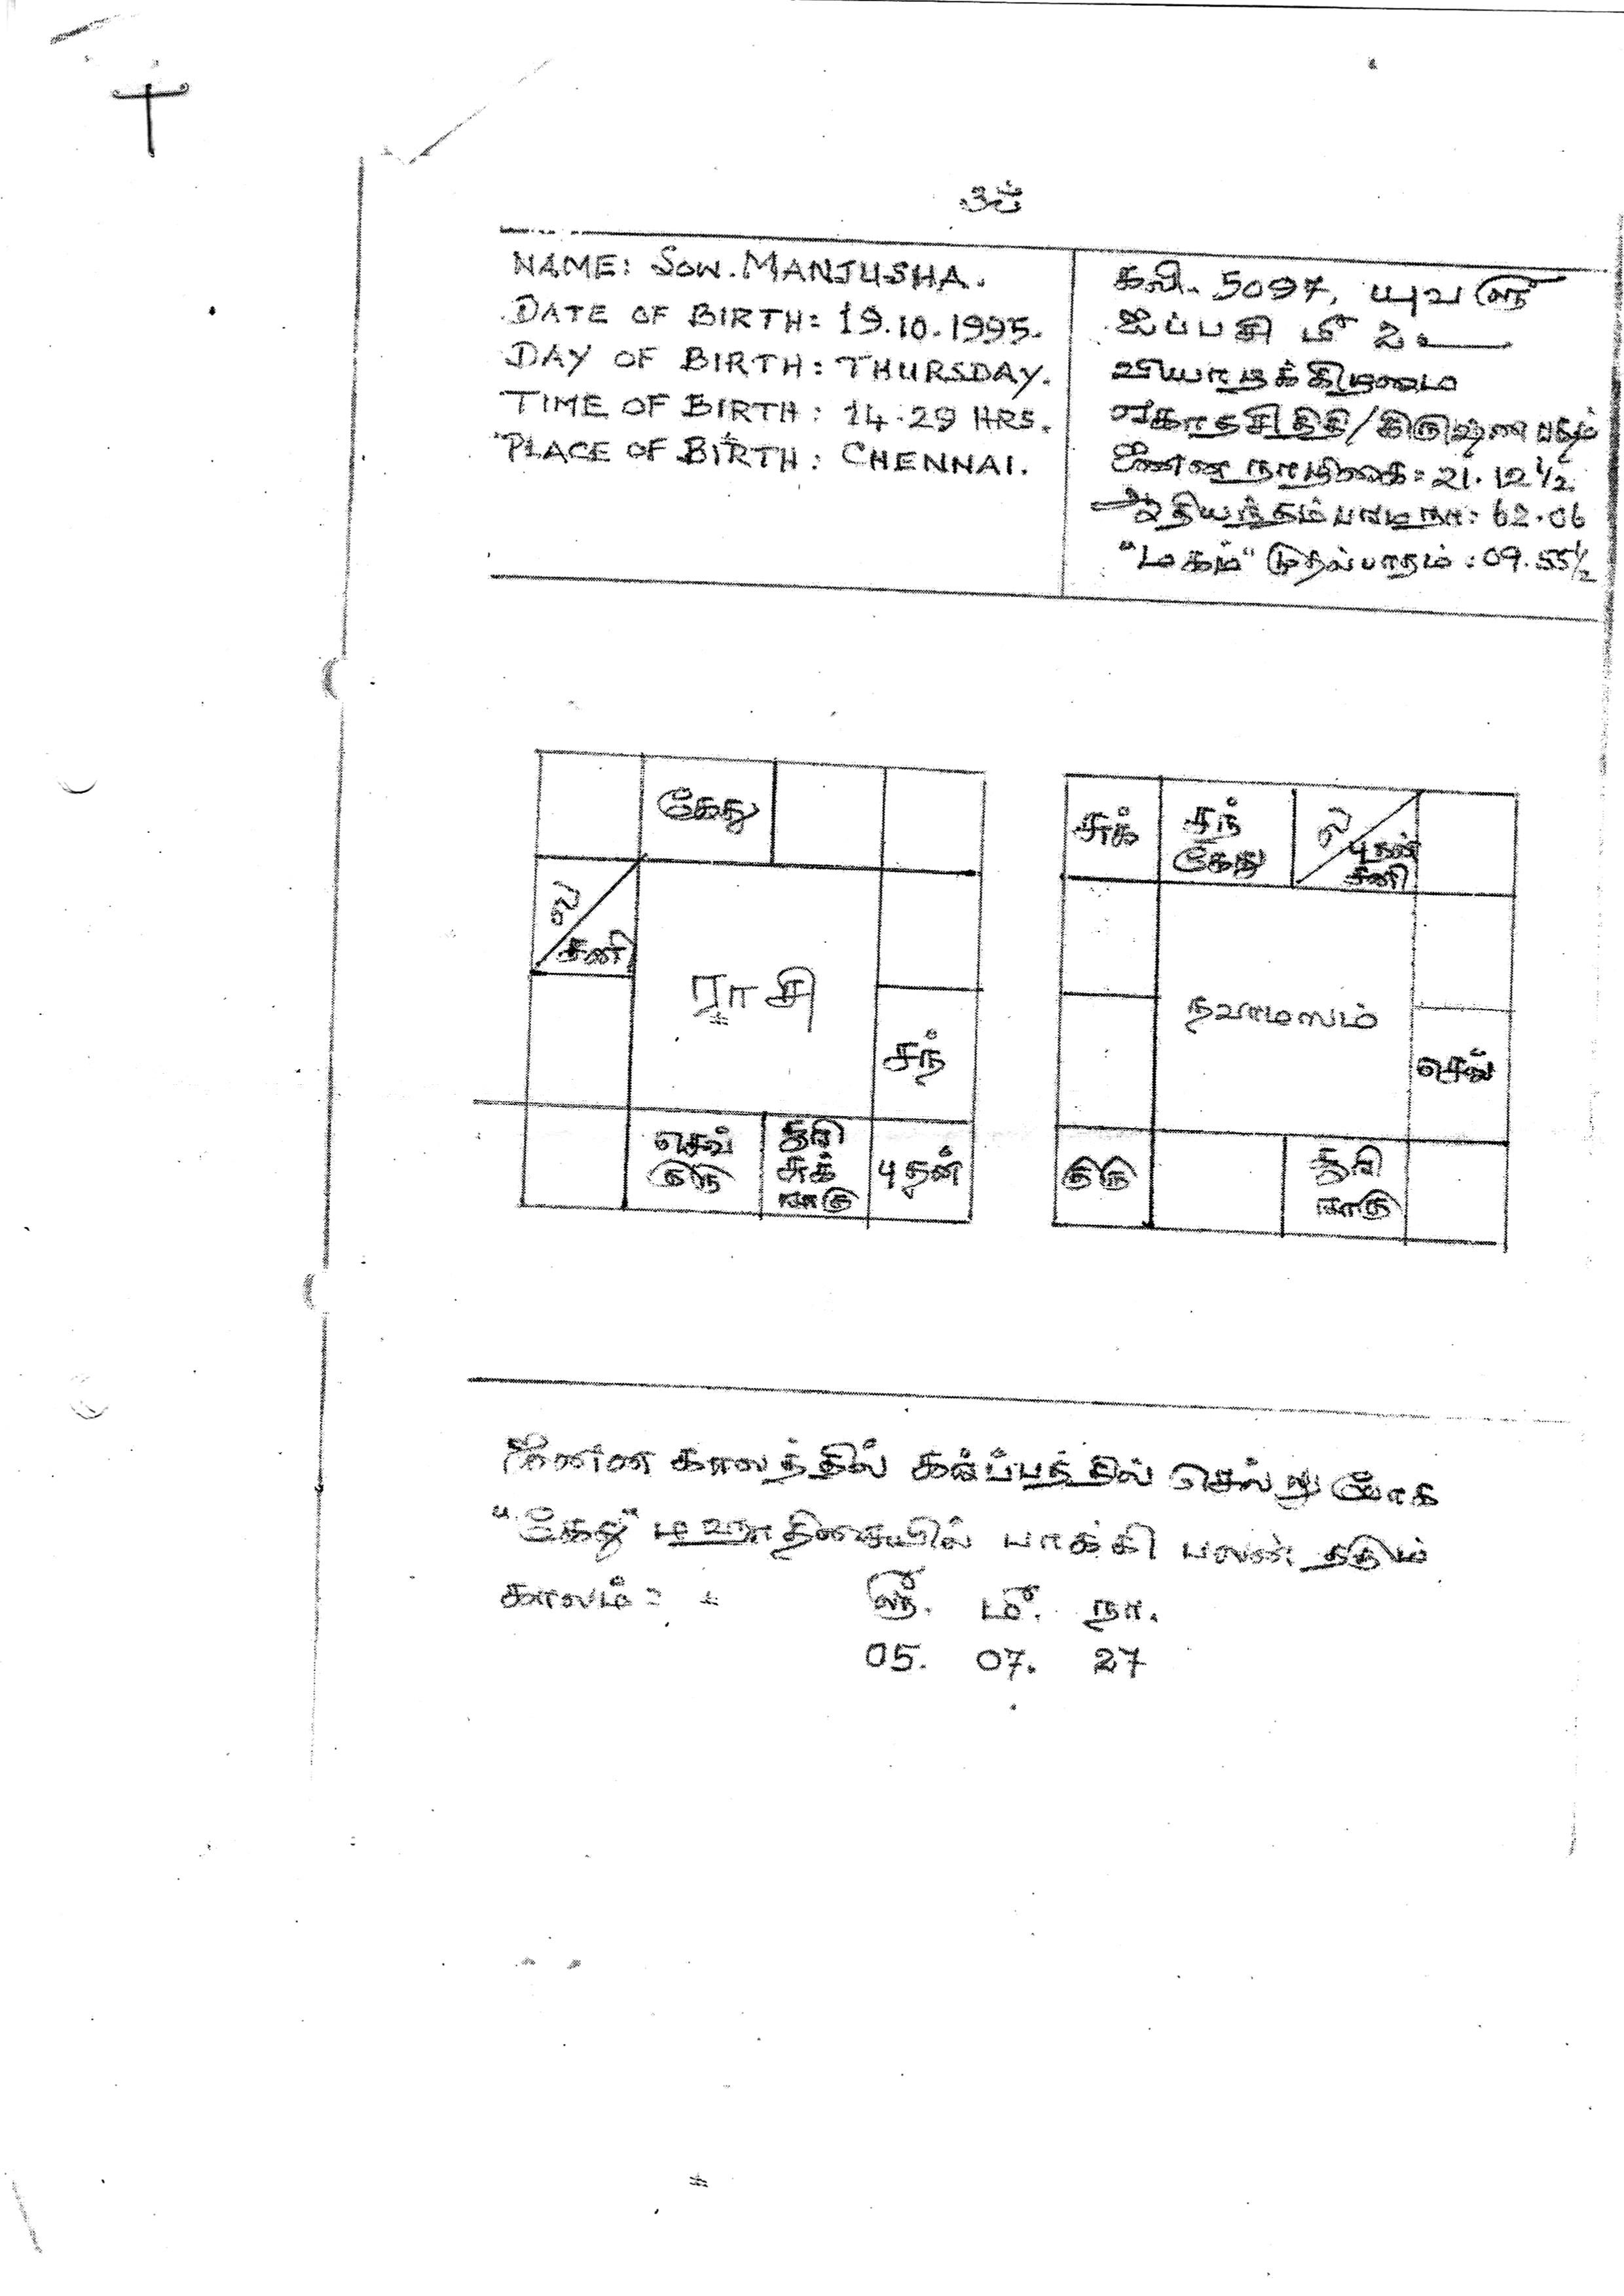 உ
NAME: SOW. MANJUSHA.
DATE OF BIRTH: 19.10.1995.
DAY OF BIRTH: THURSDAY.
TIME OF BIRTH: 14.29 HRS.
PLACE OF BIRTH: CHENNAI.
கலி. 5097, யுவ ௵
ஐப்பசி ௴ 2
வியாழக்கிழமை
ஏகாதசிதிதி/கிருஷ்ண பக்ஷம்
ஜனன நாழிகை: 21.12½
ஆதியந்தம் பரமநா: 62.06
"மகம்" முதல்பாதம்: 09.55½
கேது
ல
சனி
ராசி
சந்
செவ்
குரு
ரவி
சுக்
ராகு
புதன்
சுக்
சந்
கேது
ல
புதன்
சனி
நவாம்ஸம்
செவ்
குரு
ரவி
ராகு
ஜனன காலத்தில் கர்ப்பத்தில் சென்று போக
"கேது" மஹா திசையில் பாக்கி பலன் தரும்
காலம்: =
௵. ௴. நா.
05. 07. 27